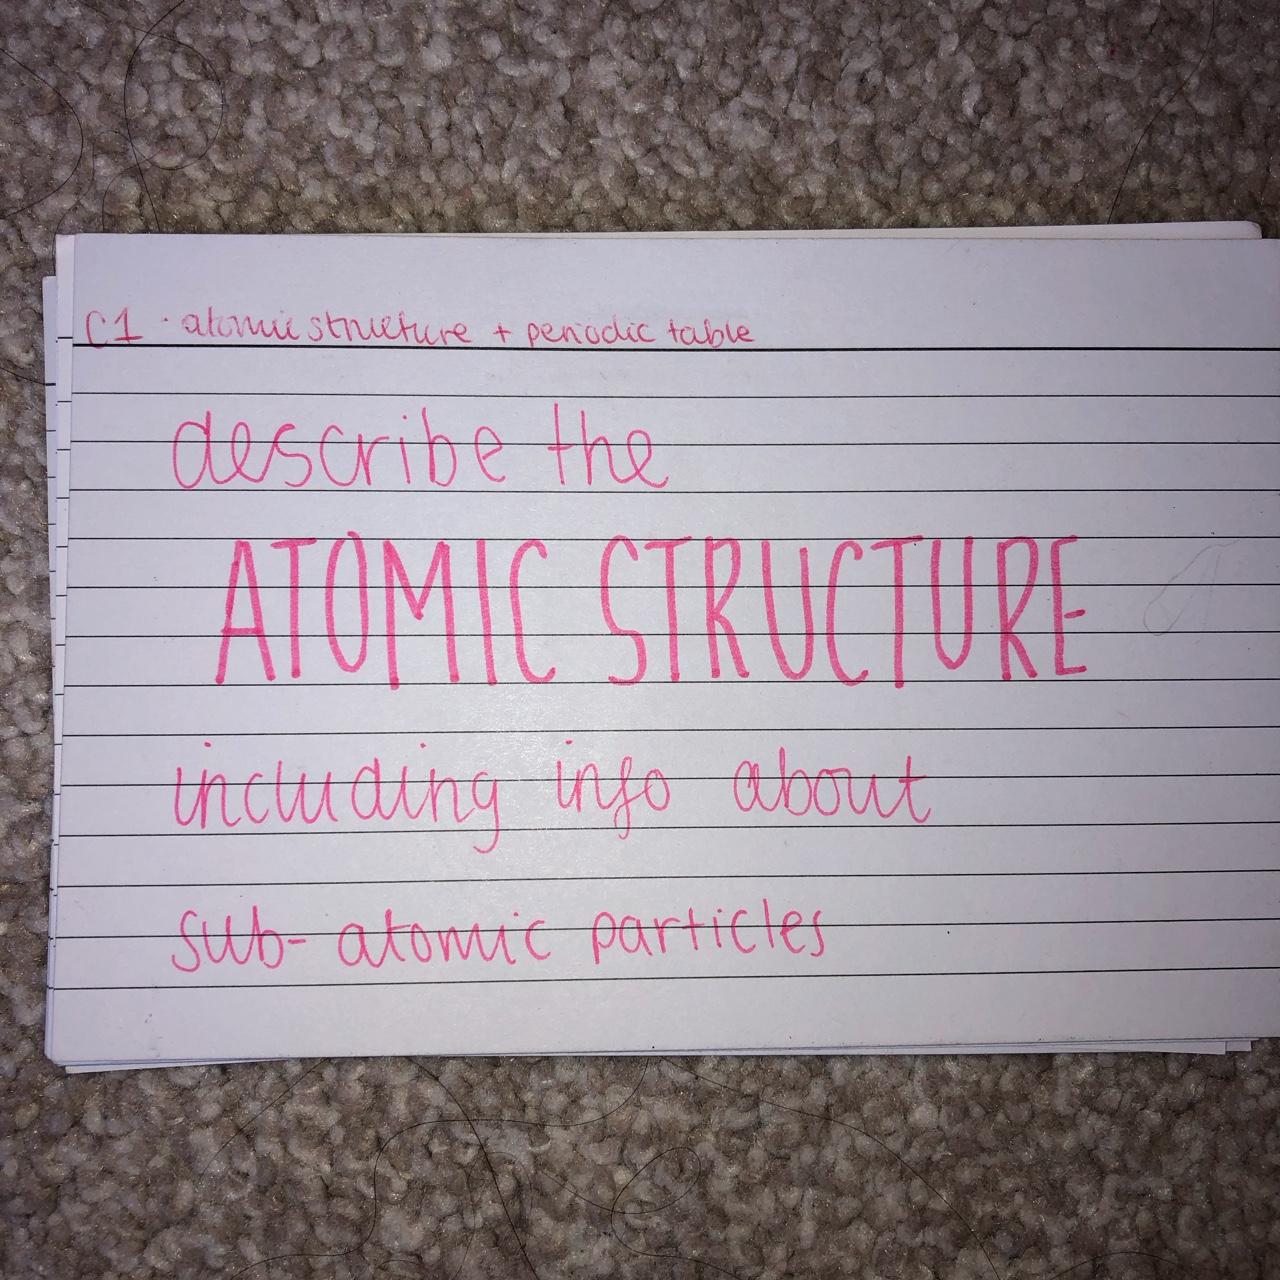 C1 · atomic structure + periodic table
describe the
ATOMIC STRUCTURE
including info about
sub-atomic particles